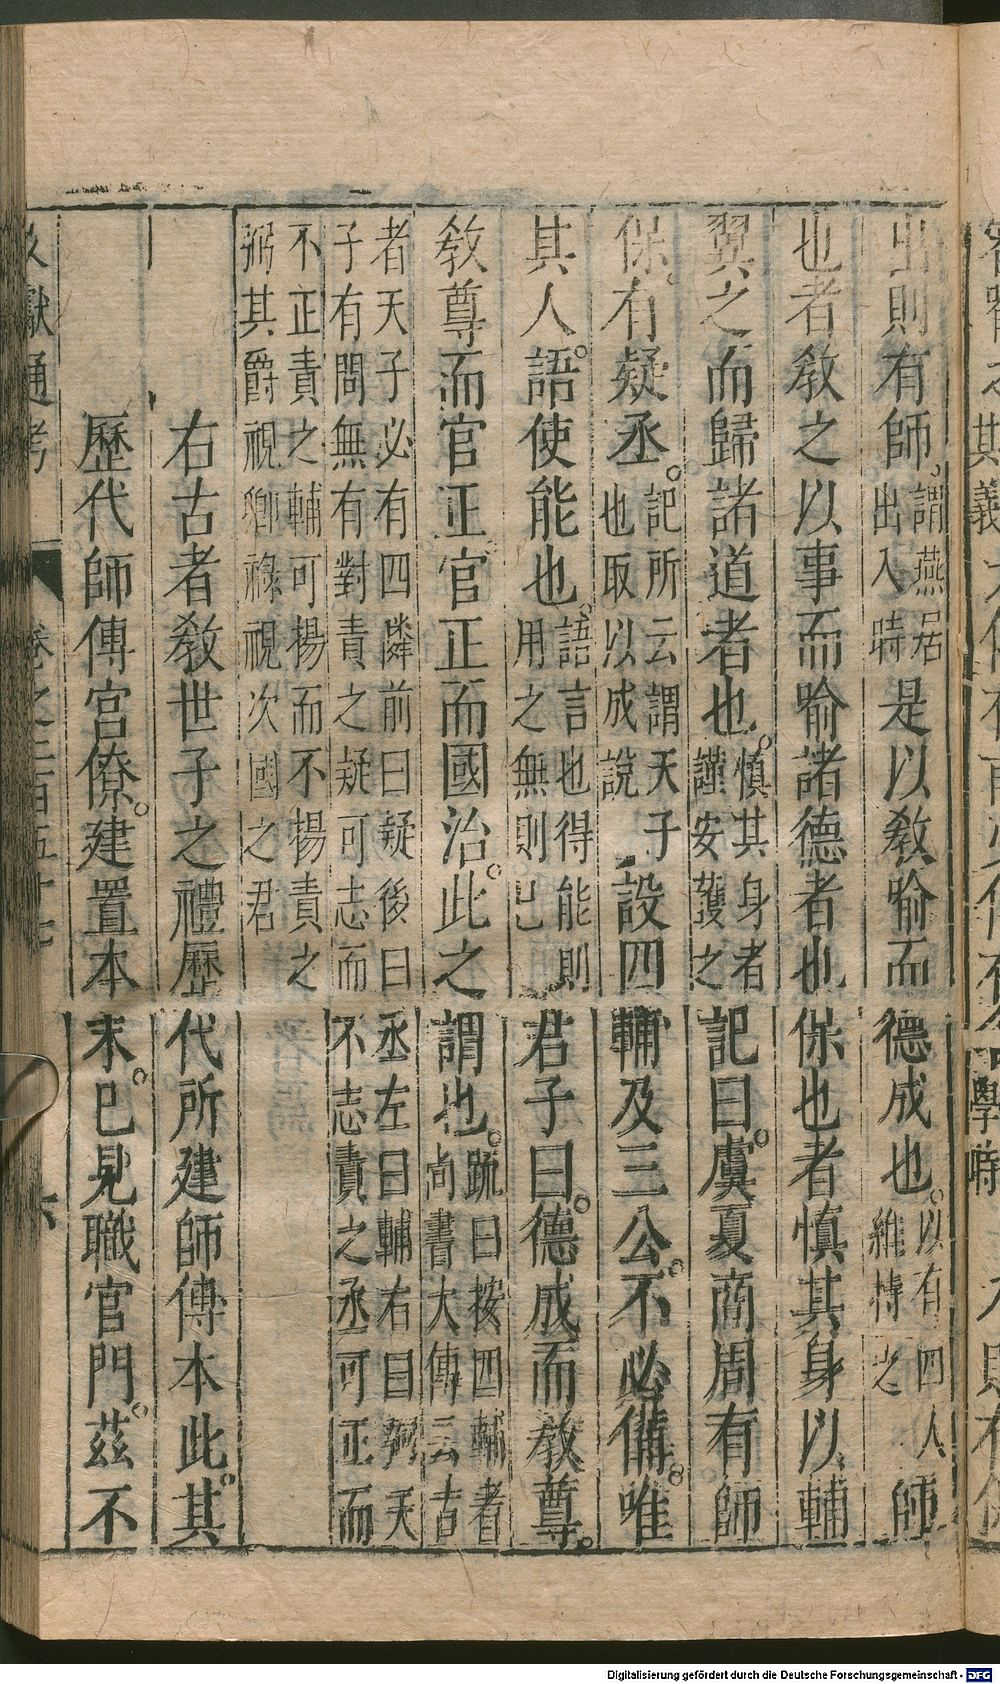 出則有師。謂燕居出入時是以教喻而德成也。以有四人維持之師
也者教之以事而喻諸德者也保也者慎其身以輔
翼之而歸諸道者也。慎其身者謹安護之記曰。虞夏商周有師
保。有疑丞。記所云謂天子也取以成說設四輔及三公。不必備。唯
其人語。使能也。語言也得能則用之無則已君子曰。德成而教尊。
教尊而官正官正而國治。此之謂也。疏曰按四輔者尚書大傳云古
者天子必有四隣前曰疑後曰丞左曰輔右目弼天
子有問無有對責之疑可志而不志責之丞可正而
不正責之輔可揚而不揚責之
弼其爵視卿祿視次國之君
右古者教世子之禮歷代所建師傅本此。其
歷代師傅宮僚。建置本末。已見職官門。茲不
文獻通考 卷之二百五十七 六
Digitalisierung gefördert durch die Deutsche Forschungsgemeinschaft - DFG